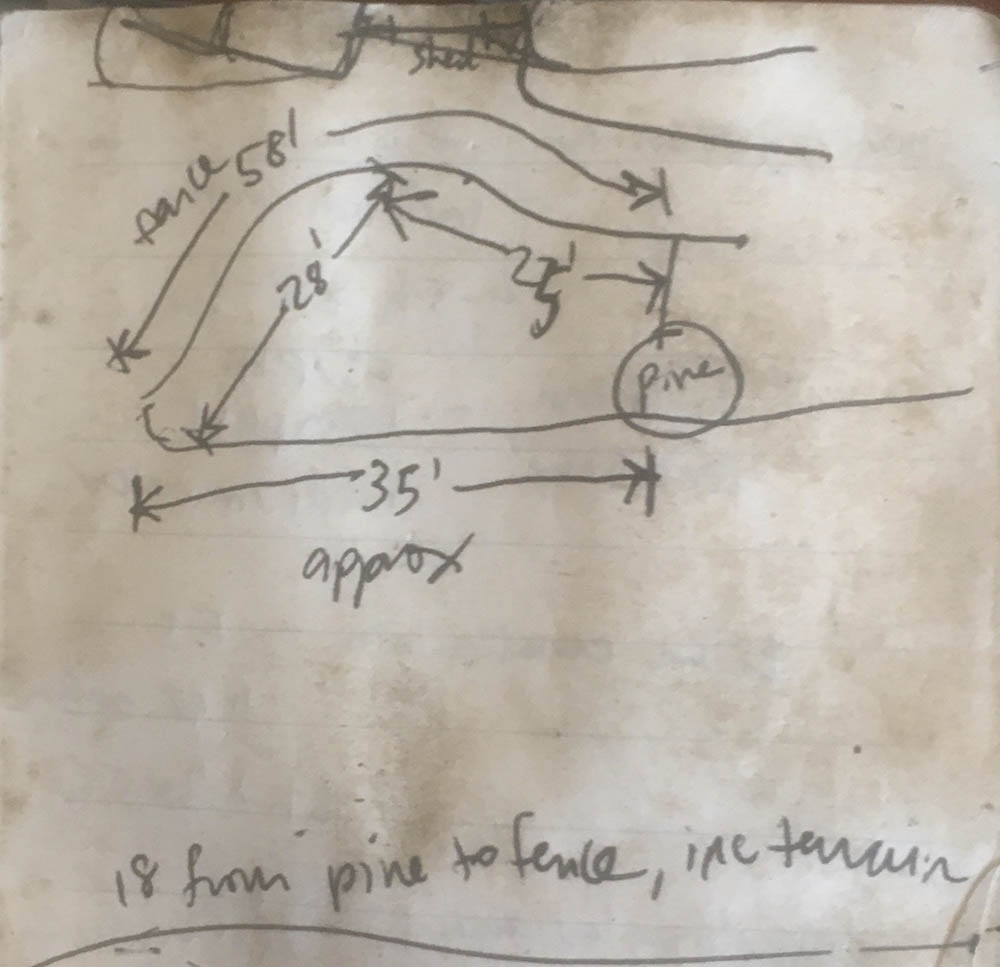 shed
58'
28'
pine
35'
approx
18 from pine to fence, inc terrain